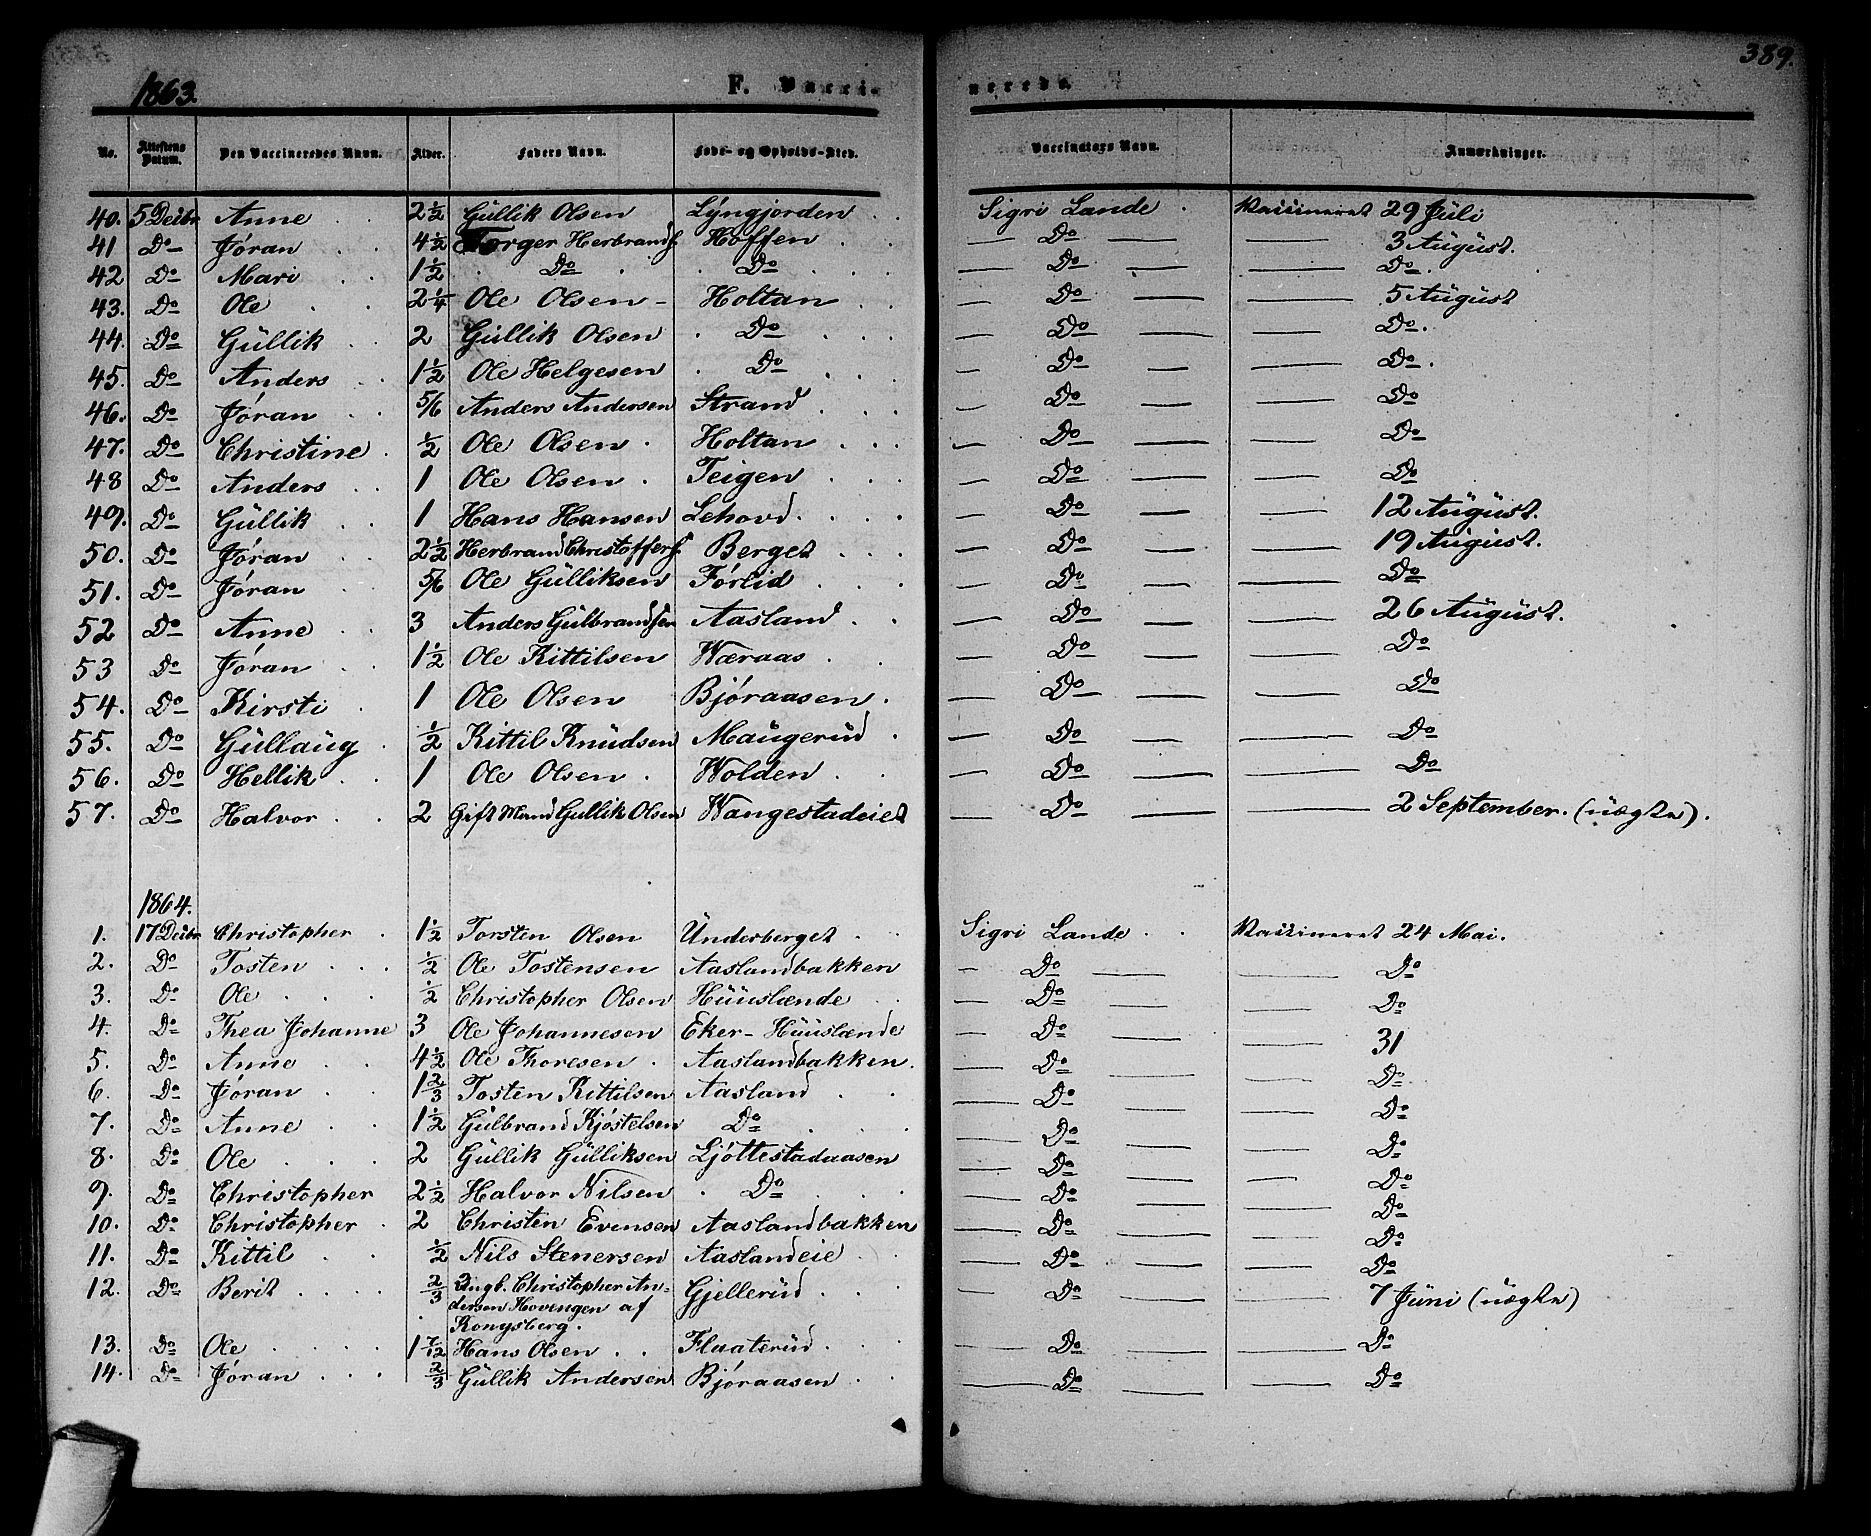 389.
1863. F. Vacci- nerede.
No. Attestens Datum. Den Vaccineredes Navn. Alder. Faders Navn. Føde- og Opholds-Sted. Vaccinators Navn. Anmærkninger.
40. 5 Decbr Anne 2½ Güllik Olsen Lÿngjorden Sigri Lande Vaccineret 29 Jüli
41 Do Jóran 4½ Torger Herbrands. Hoffen Do 3 Aügüst.
42 Do Mari 1½ Do Do Do Do.
43. Do Ole 2¼ Ole Olsen Holtan Do 5 Aügüst
44. Do Güllik 2 Güllik Olsen Do Do Do.
45. Do Anders 1½ Ole Helgesen Do Do Do.
46. Do Jóran 5/6 Anders Andersen Strand Do Do
47. Do Christine ½ Ole Olsen Holtan Do Do
48 Do Anders 1 Ole Olsen Teigen Do Do
49. Do Güllik 1 Hans Hansen Lehovd Do 12 Aügüst.
50. Do Jóran 2½ Herbrand Christoffers. Berget Do 19 Aügüst.
51. Do Jóran 5/6 Ole Gülliksen Fórlid Do Do
52 Do Anne 3 Anders Gülbrandsen Aasland Do 26 Aügüst.
53 Do Jóran 1½ Ole Kittilsen Wæraas Do Do
54. Do Kirsti 1 Ole Olsen Bjóraasen Do Do
55. Do Güllaüg ½ Kittil Knüdsen Maügerüd Do Do
56. Do Hellik 1 Ole Olsen Wolden Do Do
57. Do Halvor 2 Gift Mand Gullik Olsen Wangestadeiet Do 2 September. (üægte).
1864.
1. 17 Decbr Christopher 1½ Torsten Olsen Ünderberget Sigri Lande Vaccineret 24 Mai.
2. Do Tosten ½ Ole Tostensen Aaslandbakken Do Do
3. Do Ole ½ Christopher Olsen Hüüslænde Do Do
4. Do Thea Johanne 3 Ole Johannesen Eker-Hüüslænde Do 31
5. Do Anne 4½ Ole Thoresen Aaslandbakken. Do Do
6. Do Jóran 1⅔ Tosten Kittilsen Aasland Do Do
7. Do Anne 1½ Gülbrand Kjóstelsen Do Do Do
8. Do Ole 2 Güllik Gülliksen Ljóttestadaasen Do Do
9. Do Christopher 2½ Halvor Nilsen Do Do Do
10. Do Christopher 2 Christen Evensen Aaslandbakken Do Do
11. Do Kittil ½ Nils Stenersen Aaslandeie Do Do
12. Do Berit ⅔ Ungk. Christopher An- Gjellerüd Do 7 Jüni (üægte)
dersen Hovengen af
Kongsberg.
13. Do Ole 1 7/12 Hans Olsen Flaaterüd Do Do
14. Do Jóran ⅔ Güllik Andersen Bjóraasen Do Do